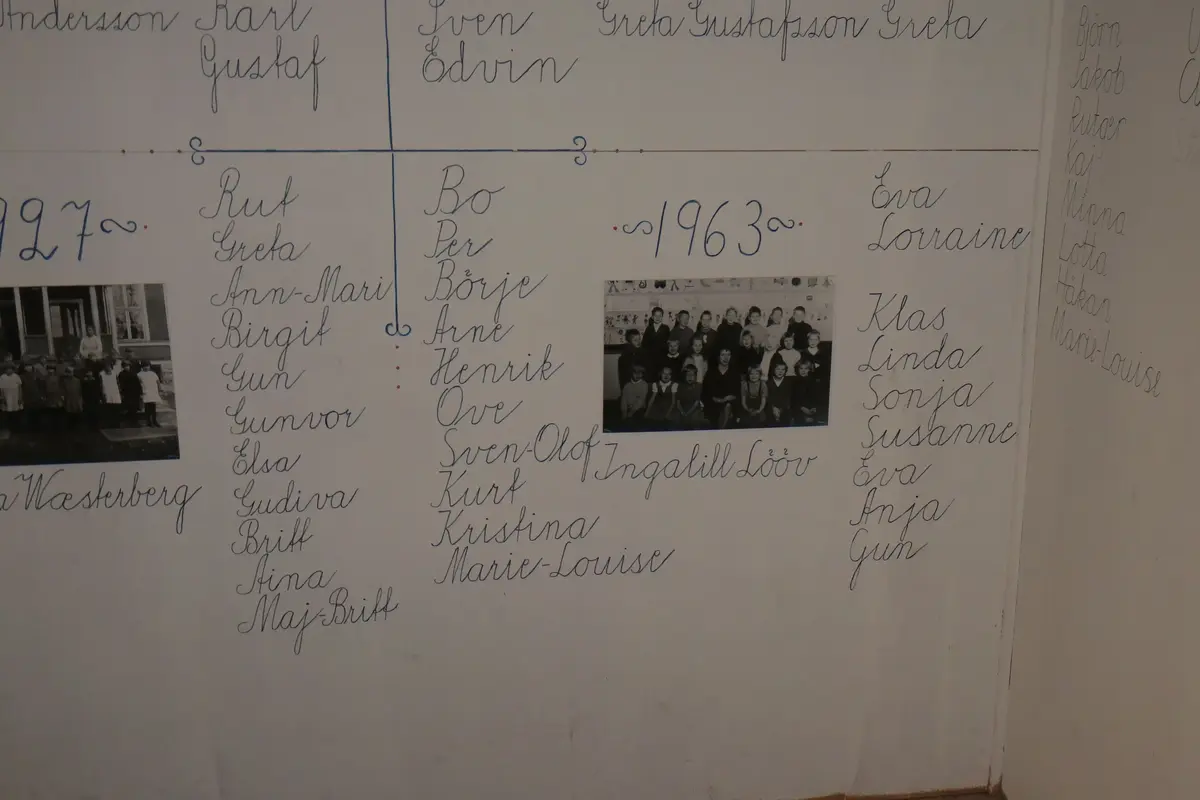 Andersson
Karl
Gustaf
Sven
Edvin
Greta Gustafsson Greta
927
Wæsterberg
Rut
Greta
Ann-Mari
Birgit
Gun
Gunvor
Elsa
Gudiva
Britt
Aina
Maj-Britt
Bo
Per
Börje
Arne
Henrik
Ove
Sven-Olof
Kurt
Kristina
Marie-Louise
1963
Ingalill Lööv
Eva
Lorraine
Klas
Linda
Sonja
Susanne
Eva
Anja
Gun
Björn
Jakob
Rutger
Kaj
Minna
Lotta
Håkan
Marie-Louise